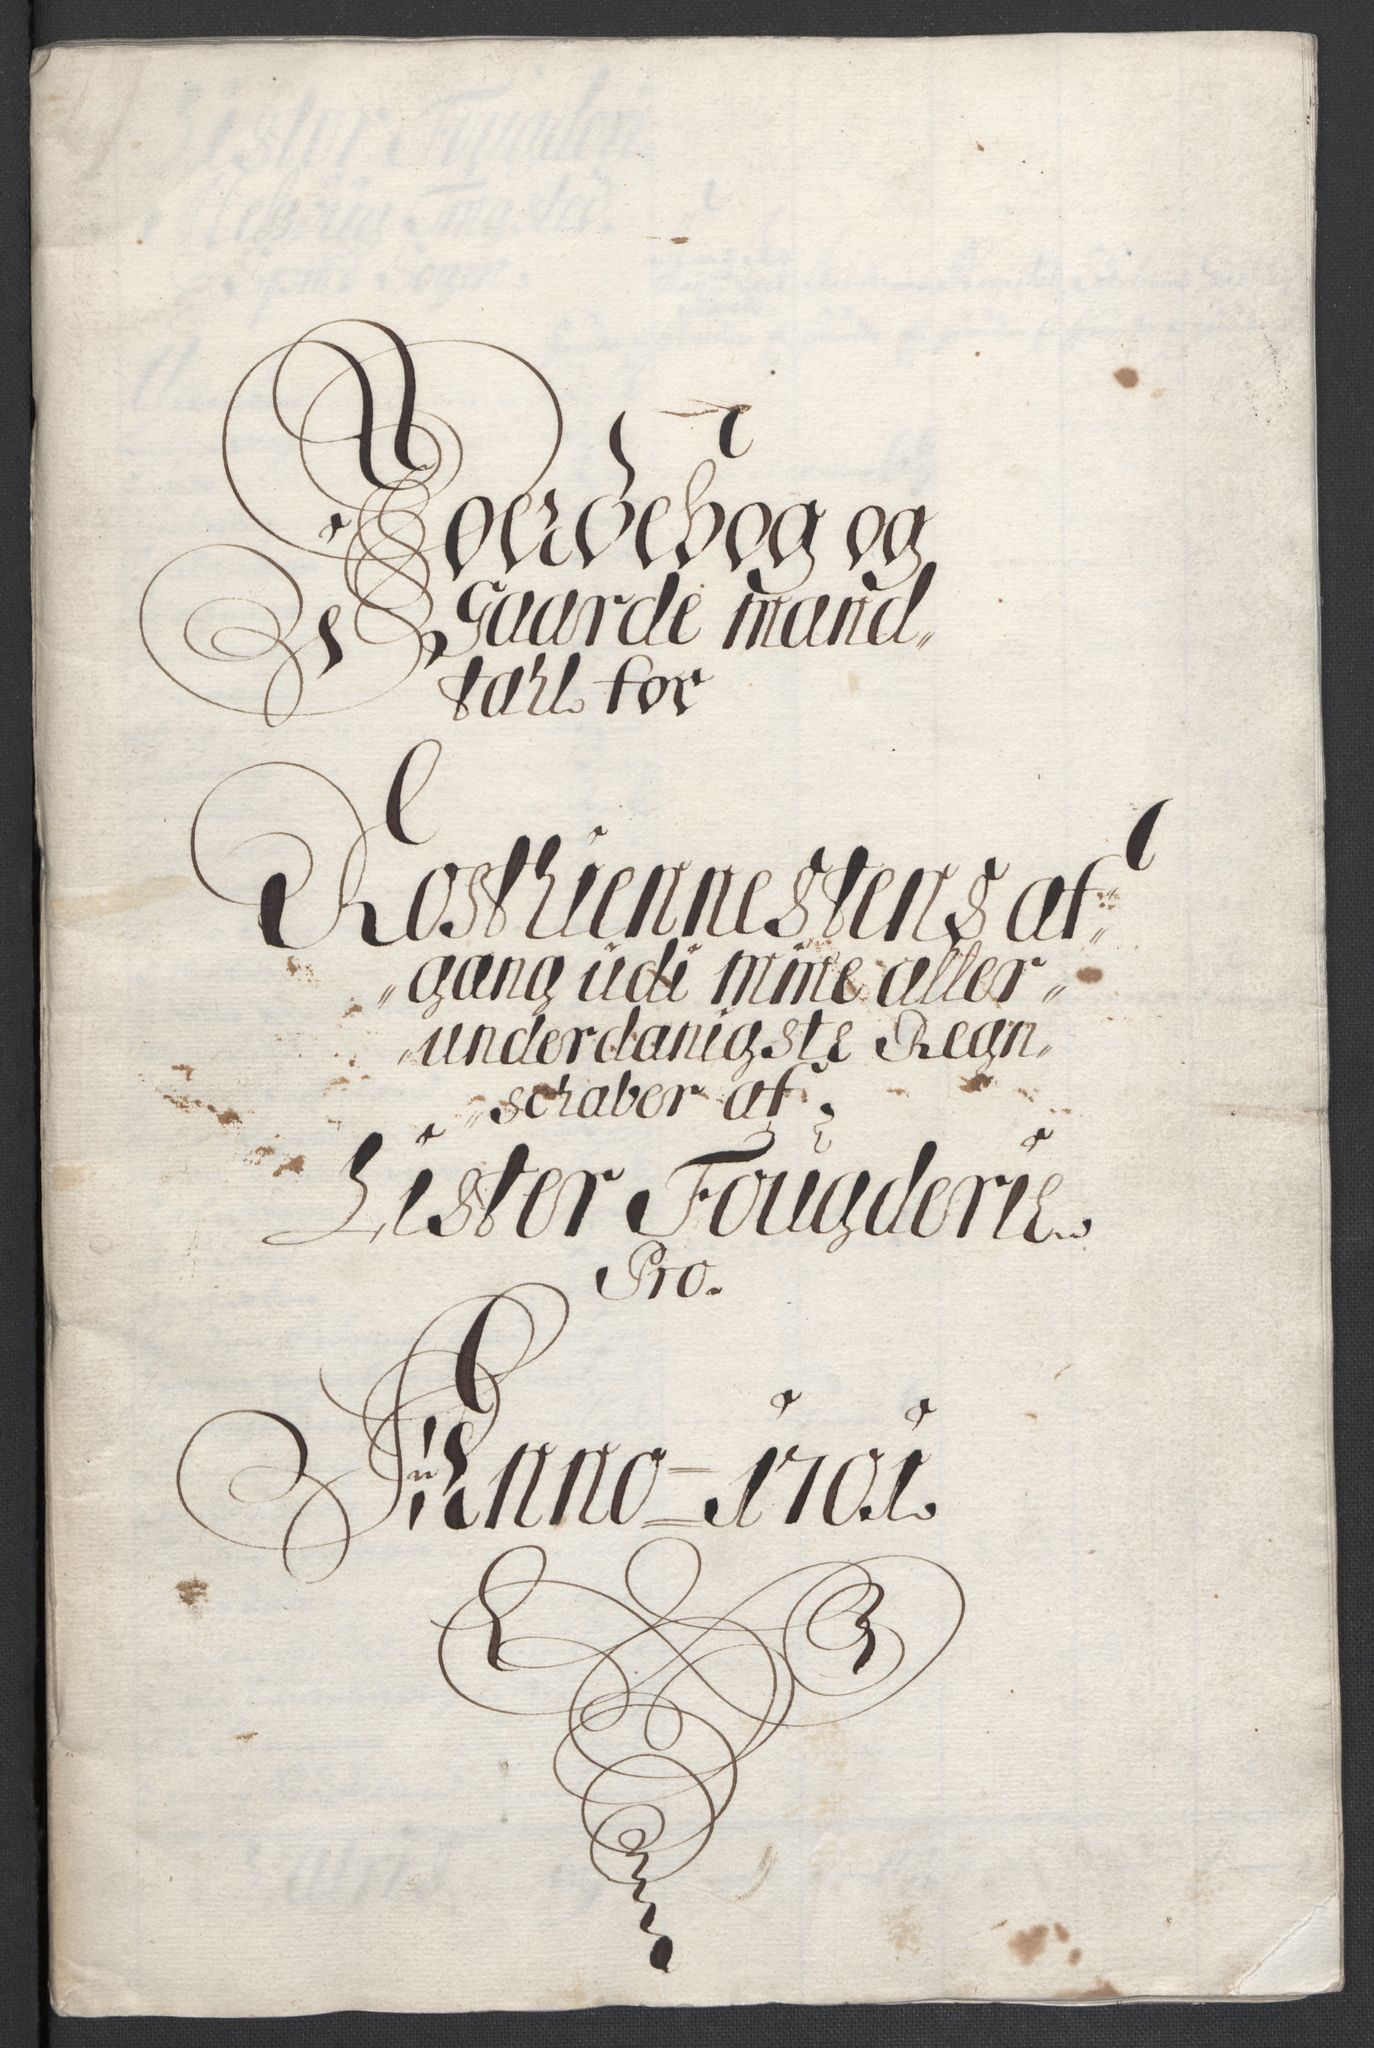 Joerdebog og
Gaarde mand„
tahl for
Rostiennestens af„
„gang udi mine aller„
„underdanigste Regn„
„schaber af
Lister Fougderie
Pro.
Anno = 1701